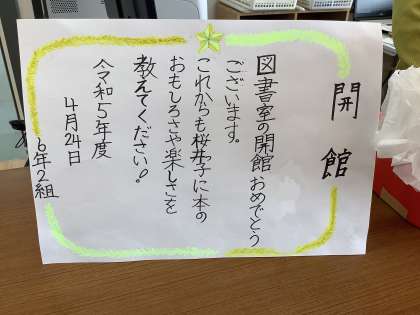 開館
図書室の開館おめでとう
ございます。
これからも桜井っ子に本の
おもしろさや楽しさを
教えてください!
令和5年度
4月24日
6年2組